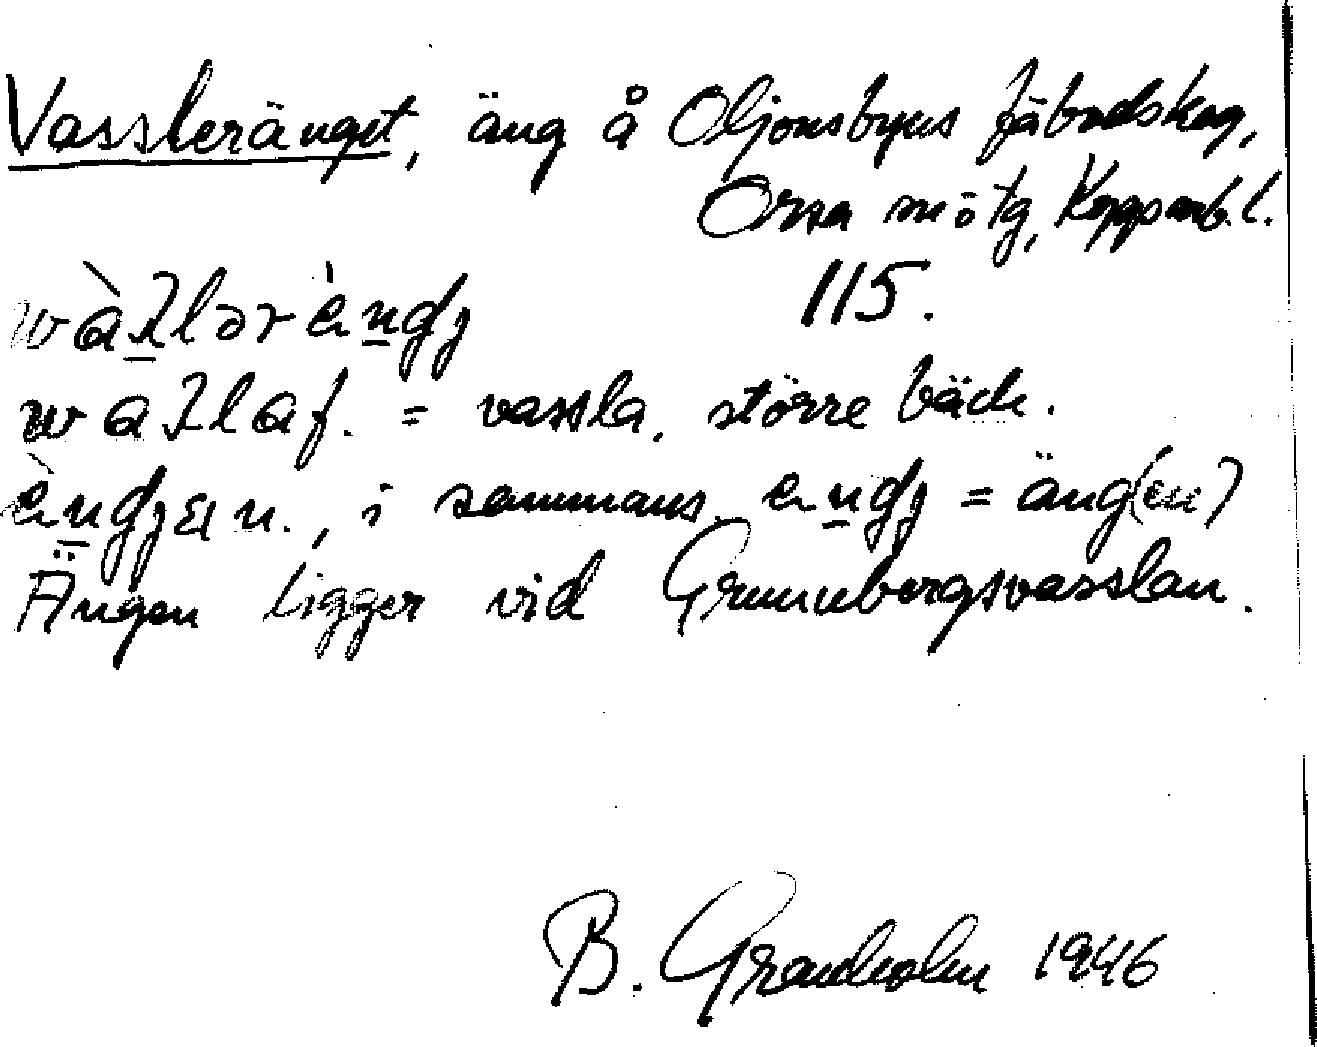 Vassleränget, äng å Oljonsbyns fäbodskog,
Orsa sn ö tg, Kopparb. l.
115.
f. = vassla, större bäck.
n., i sammans. = äng(en)
Ängen ligger vid Grunubergsvasslan.
B. Granholm 1946